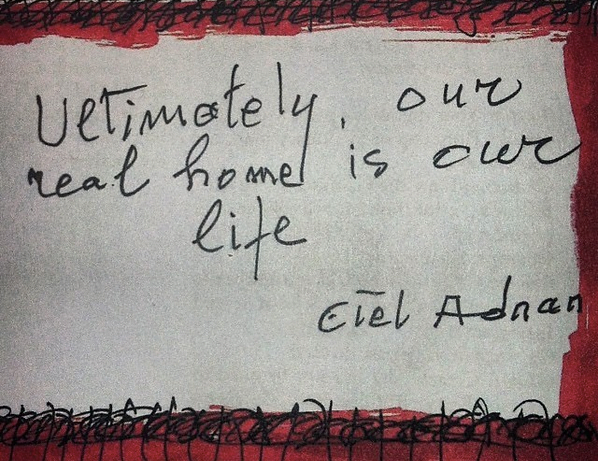 Ultimately, our
real home is our
life
Etel Adnan